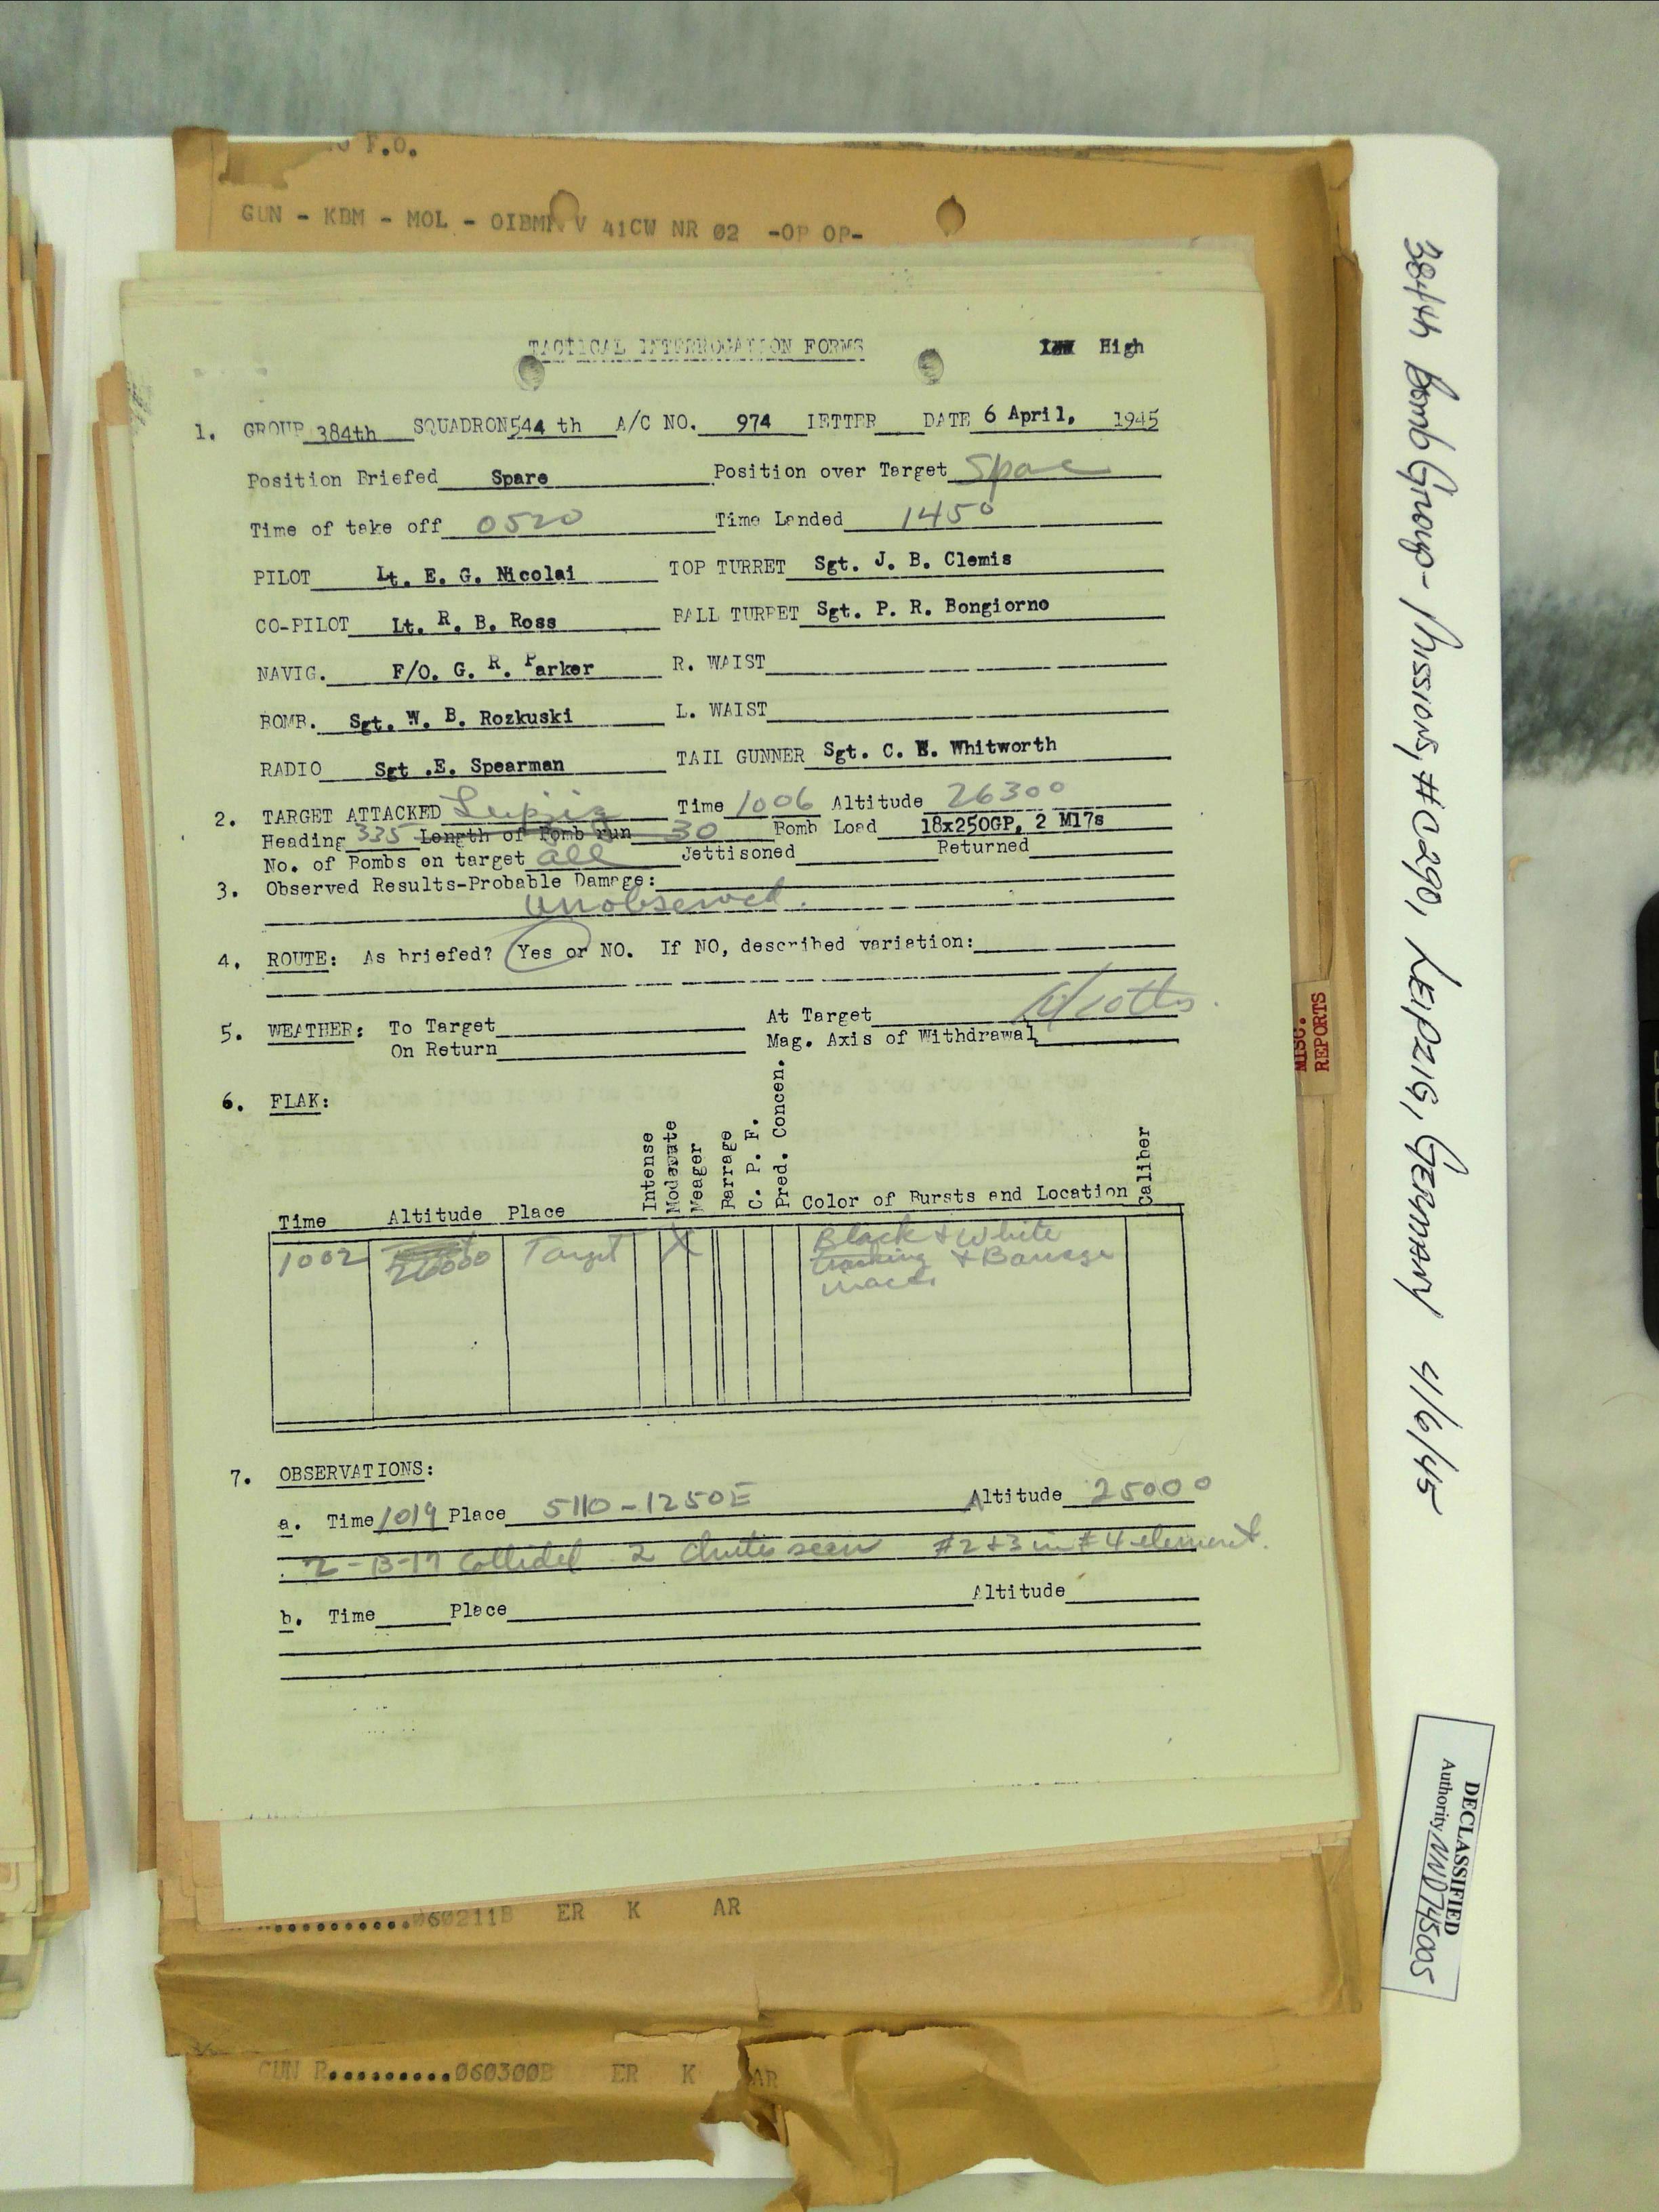 F.O.
GUN - KBM - MOL - OIBMR V 41CW NR 02 -OP OP-
TACTICAL INTERROGATION FORMS High
1. GROUP 384th SQUADRON 544 th A/C NO. 974 LETTER DATE 6 April, 1945
Position Briefed Spare Position over Target Spare
Time of take off 0520 Time Landed 1450
PILOT Lt. E. G. Nicolai TOP TURRET Sgt. J. B. Clemis
CO-PILOT Lt. R. B. Ross BALL TURRET Sgt. P. R. Bongiorno
NAVIG. F/O. G. R. Parker R. WAIST
BOMB. Sgt. W. B. Rozkuski L. WAIST
RADIO Sgt .E. Spearman TAIL GUNNER Sgt. C. E. Whitworth
2. TARGET ATTACKED Leipzig Time 1006 Altitude 26300
Heading 335 Length of Bomb run 30 Bomb Load 18x250GP, 2 M17s
No. of Bombs on target all Jettisoned Returned
3. Observed Results-Probable Damage:
unobserved.
4. ROUTE: As briefed? Yes or NO. If NO, described variation:
5. WEATHER: To Target At Target
On Return Mag. Axis of Withdrawal
6. FLAK:
Time Altitude Place Intense Moderate Meager Barrage C. P. F. Pred. Concen. Color of Bursts and Location Caliber
1002 26000 Target X Black + White
tracking + Barrage
7. OBSERVATIONS:
a. Time 1019 Place 5110-1250E Altitude 25000
2-B-17 Collided 2 Chutes seen #2+3 in #4 element.
b. Time Place Altitude
060211B ER K AR
GUN R..........060300B ER K AR
MISC.
REPORTS
384th Bomb Group - Missions, #290, LEIPZIG, GERMANY 4/6/45
DECLASSIFIED
Authority NND745005